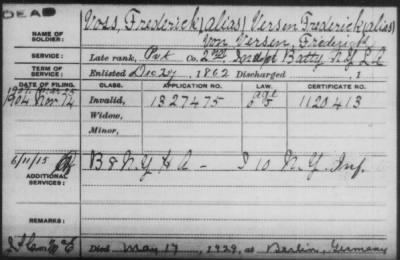 DEAD
NAME OF SOLDIER:
Vois, Frederick (alias) Versen Frederick (alias)
Von Versen, Frederick
SERVICE:
Late rank, Pvt Co. 2nd Indpt Batty N.Y. L.A.
TERM OF SERVICE:
Enlisted Dec 27, 1862 Discharged , 1
DATE OF FILING. CLASS. APPLICATION NO. LAW. CERTIFICATE NO.
1904 Nov 14 Invalid, 1327475 1120413
Widow,
Minor,
6/11/15 B 8 N.Y. H A - I 10 N.Y. Inf.
ADDITIONAL SERVICES:
REMARKS:
Died May 17, 1929, at Berlin, Germany